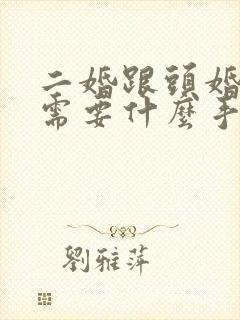 二婚跟頭婚
需要什麼手
劉雅萍